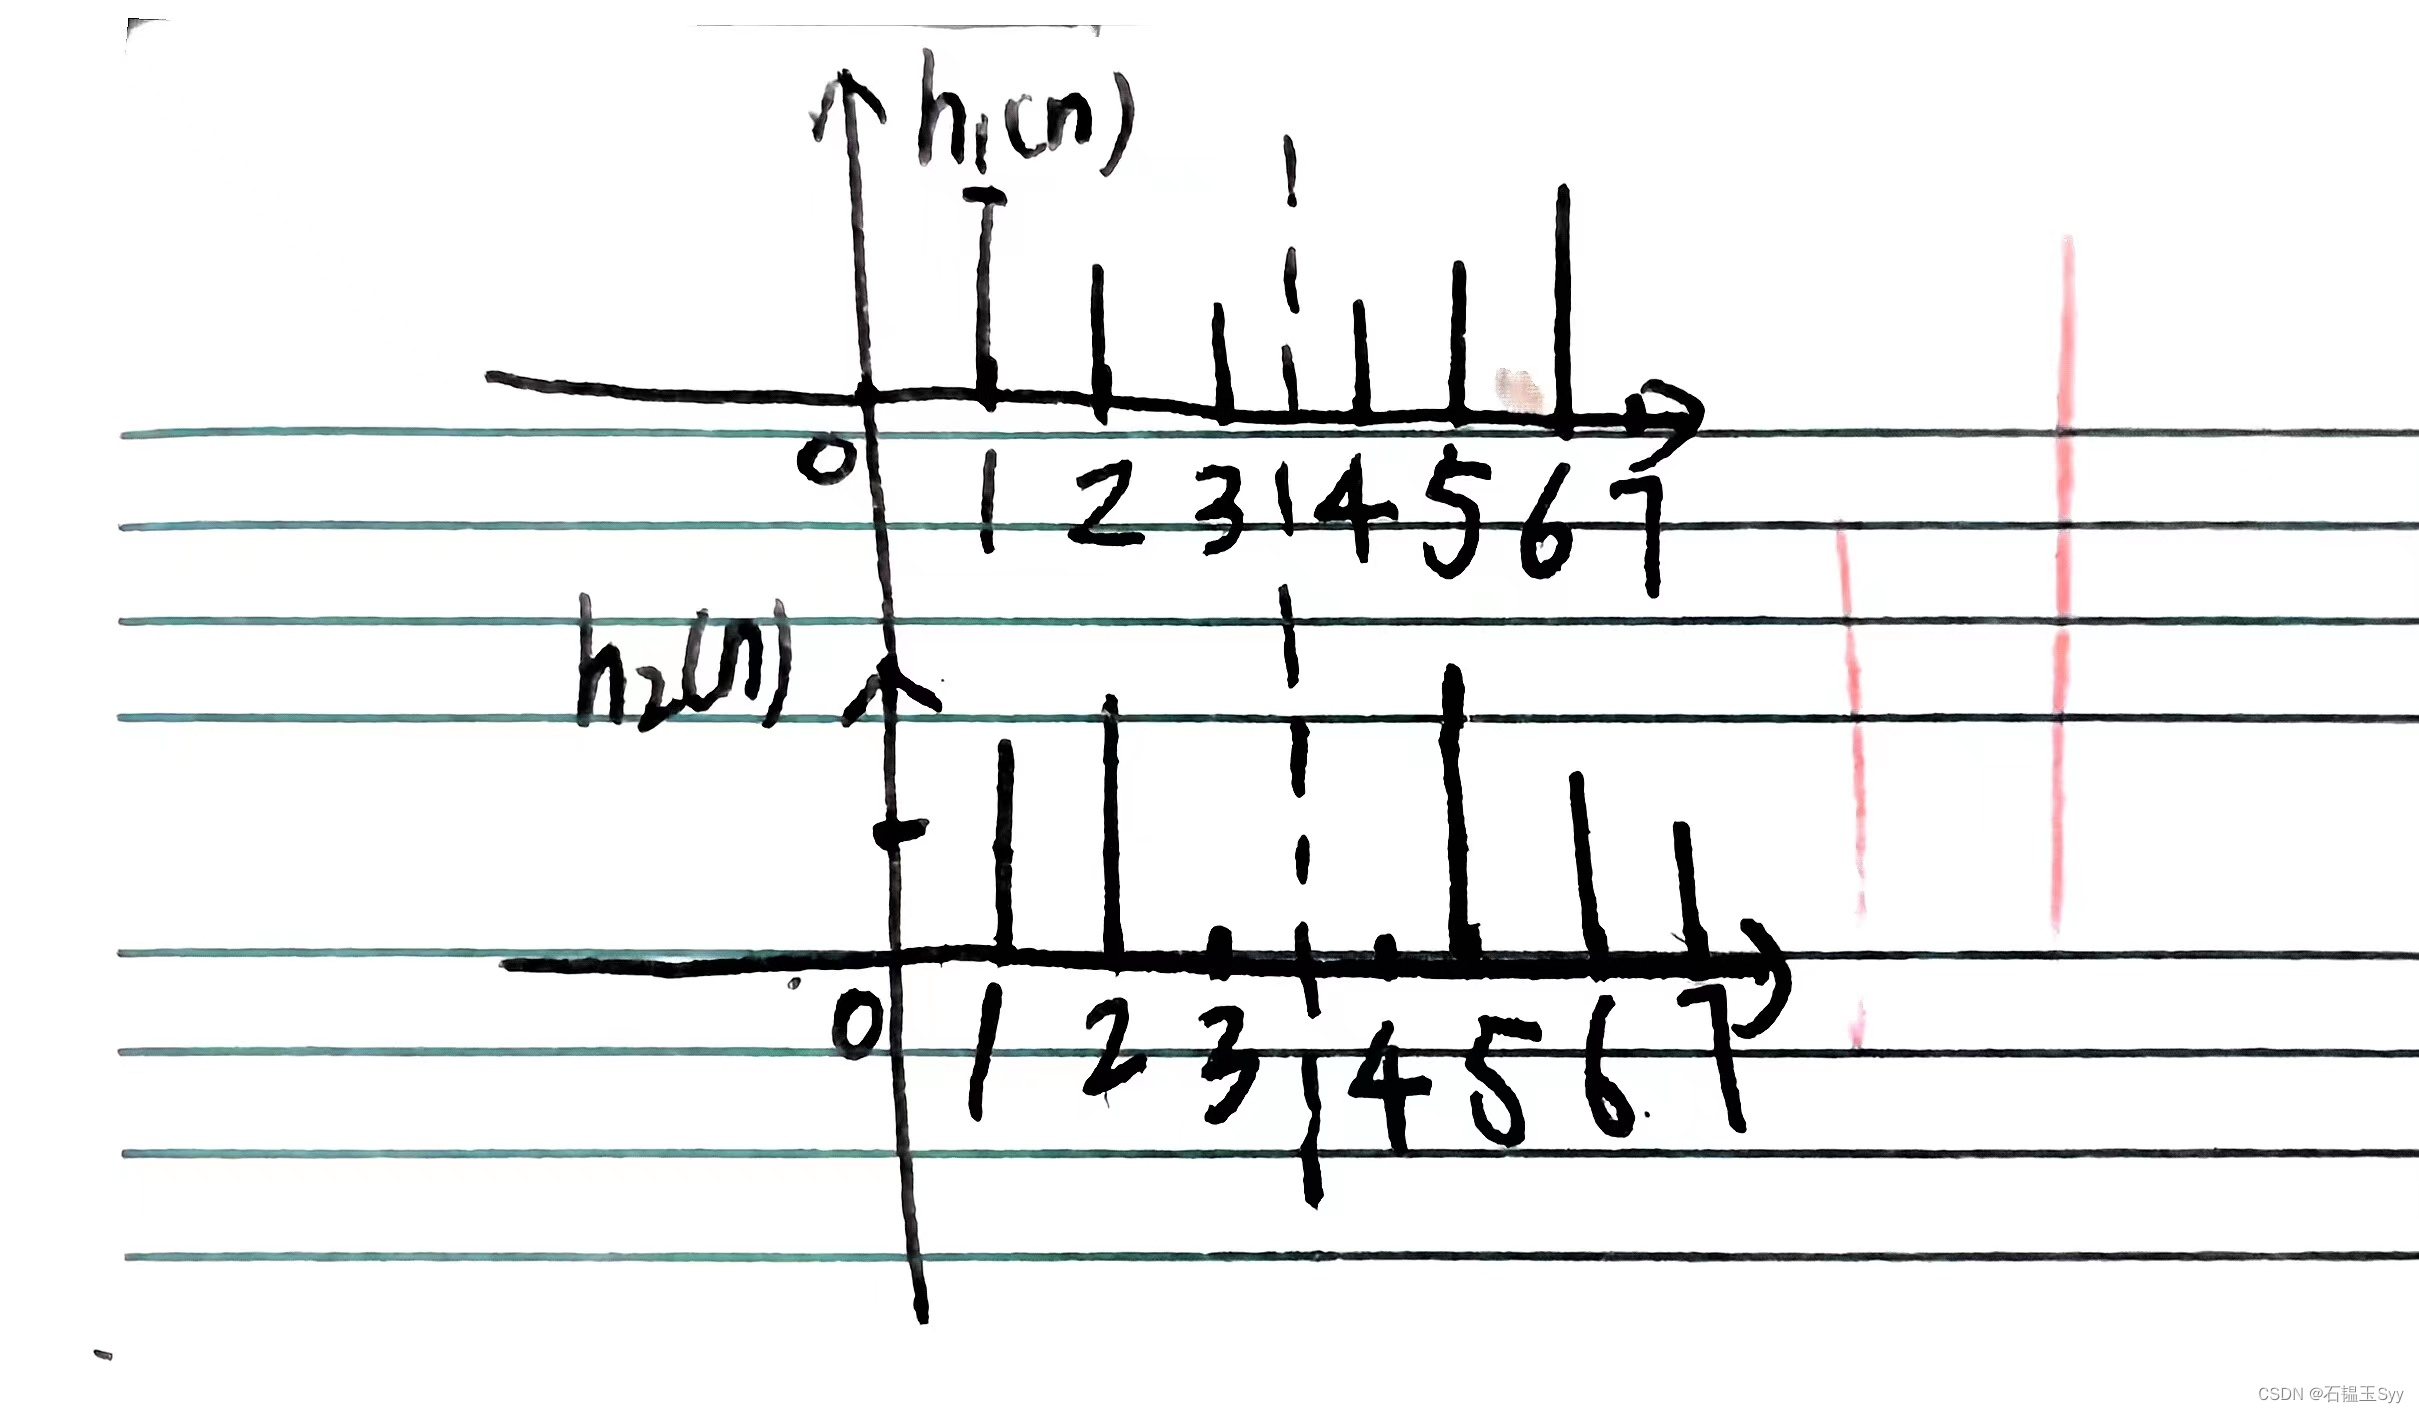 h₁(n)
0 1 2 3 4 5 6 7
h₂(n)
0 1 2 3 4 5 6 7
CSDN @石韫玉Syy